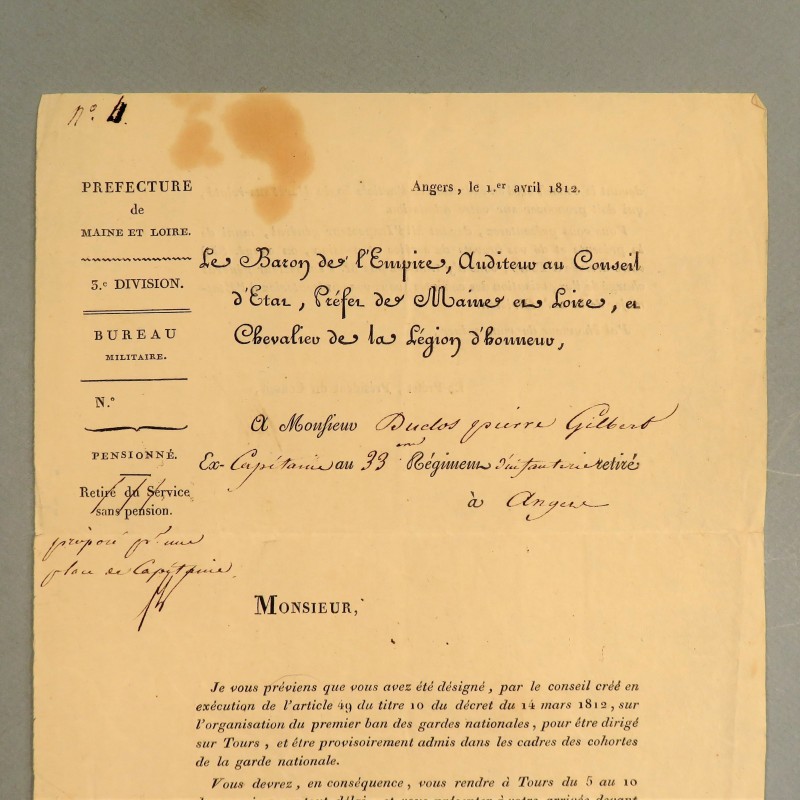 n.º 4.
PREFECTURE
de
MAINE ET LOIRE.
3.e DIVISION.
BUREAU
MILITAIRE.
N.º
PENSIONNÉ.
Retiré du Service
sans pension.
proposé pr. une
place de Capitaine
Angers, le 1.er avril 1812.
Le Baron de l'Empire, Auditeur au Conseil
d'Etat, Préfet de Maine et Loire, et
Chevalier de la Légion d'honneur,
A Monsieur Duclos pierre Gilbert
Ex-Capitaine au 33 eme Régiment d'infanterie retiré
à Angers
MONSIEUR,
Je vous préviens que vous avez été désigné, par le conseil créé en
exécution de l'article 49 du titre 10 du décret du 14 mars 1812, sur
l'organisation du premier ban des gardes nationales, pour être dirigé
sur Tours, et être provisoirement admis dans les cadres des cohortes
de la garde nationale.
Vous devrez, en conséquence, vous rendre à Tours du 5 au 10